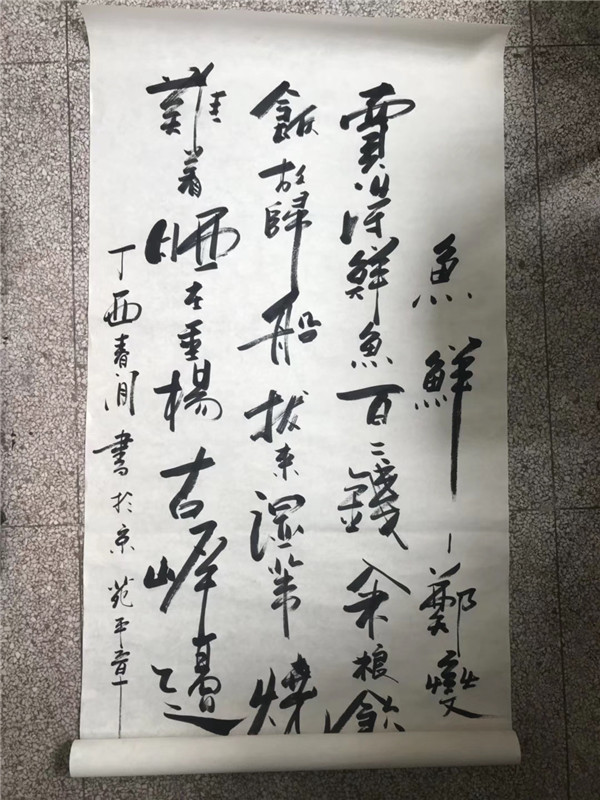 魚鮮-鄭燮
賣得鮮魚百二錢籴粮
飯放歸船拔來濕葦燒
難着晒在垂楊古岸邊
丁酉春月書於京苑平章